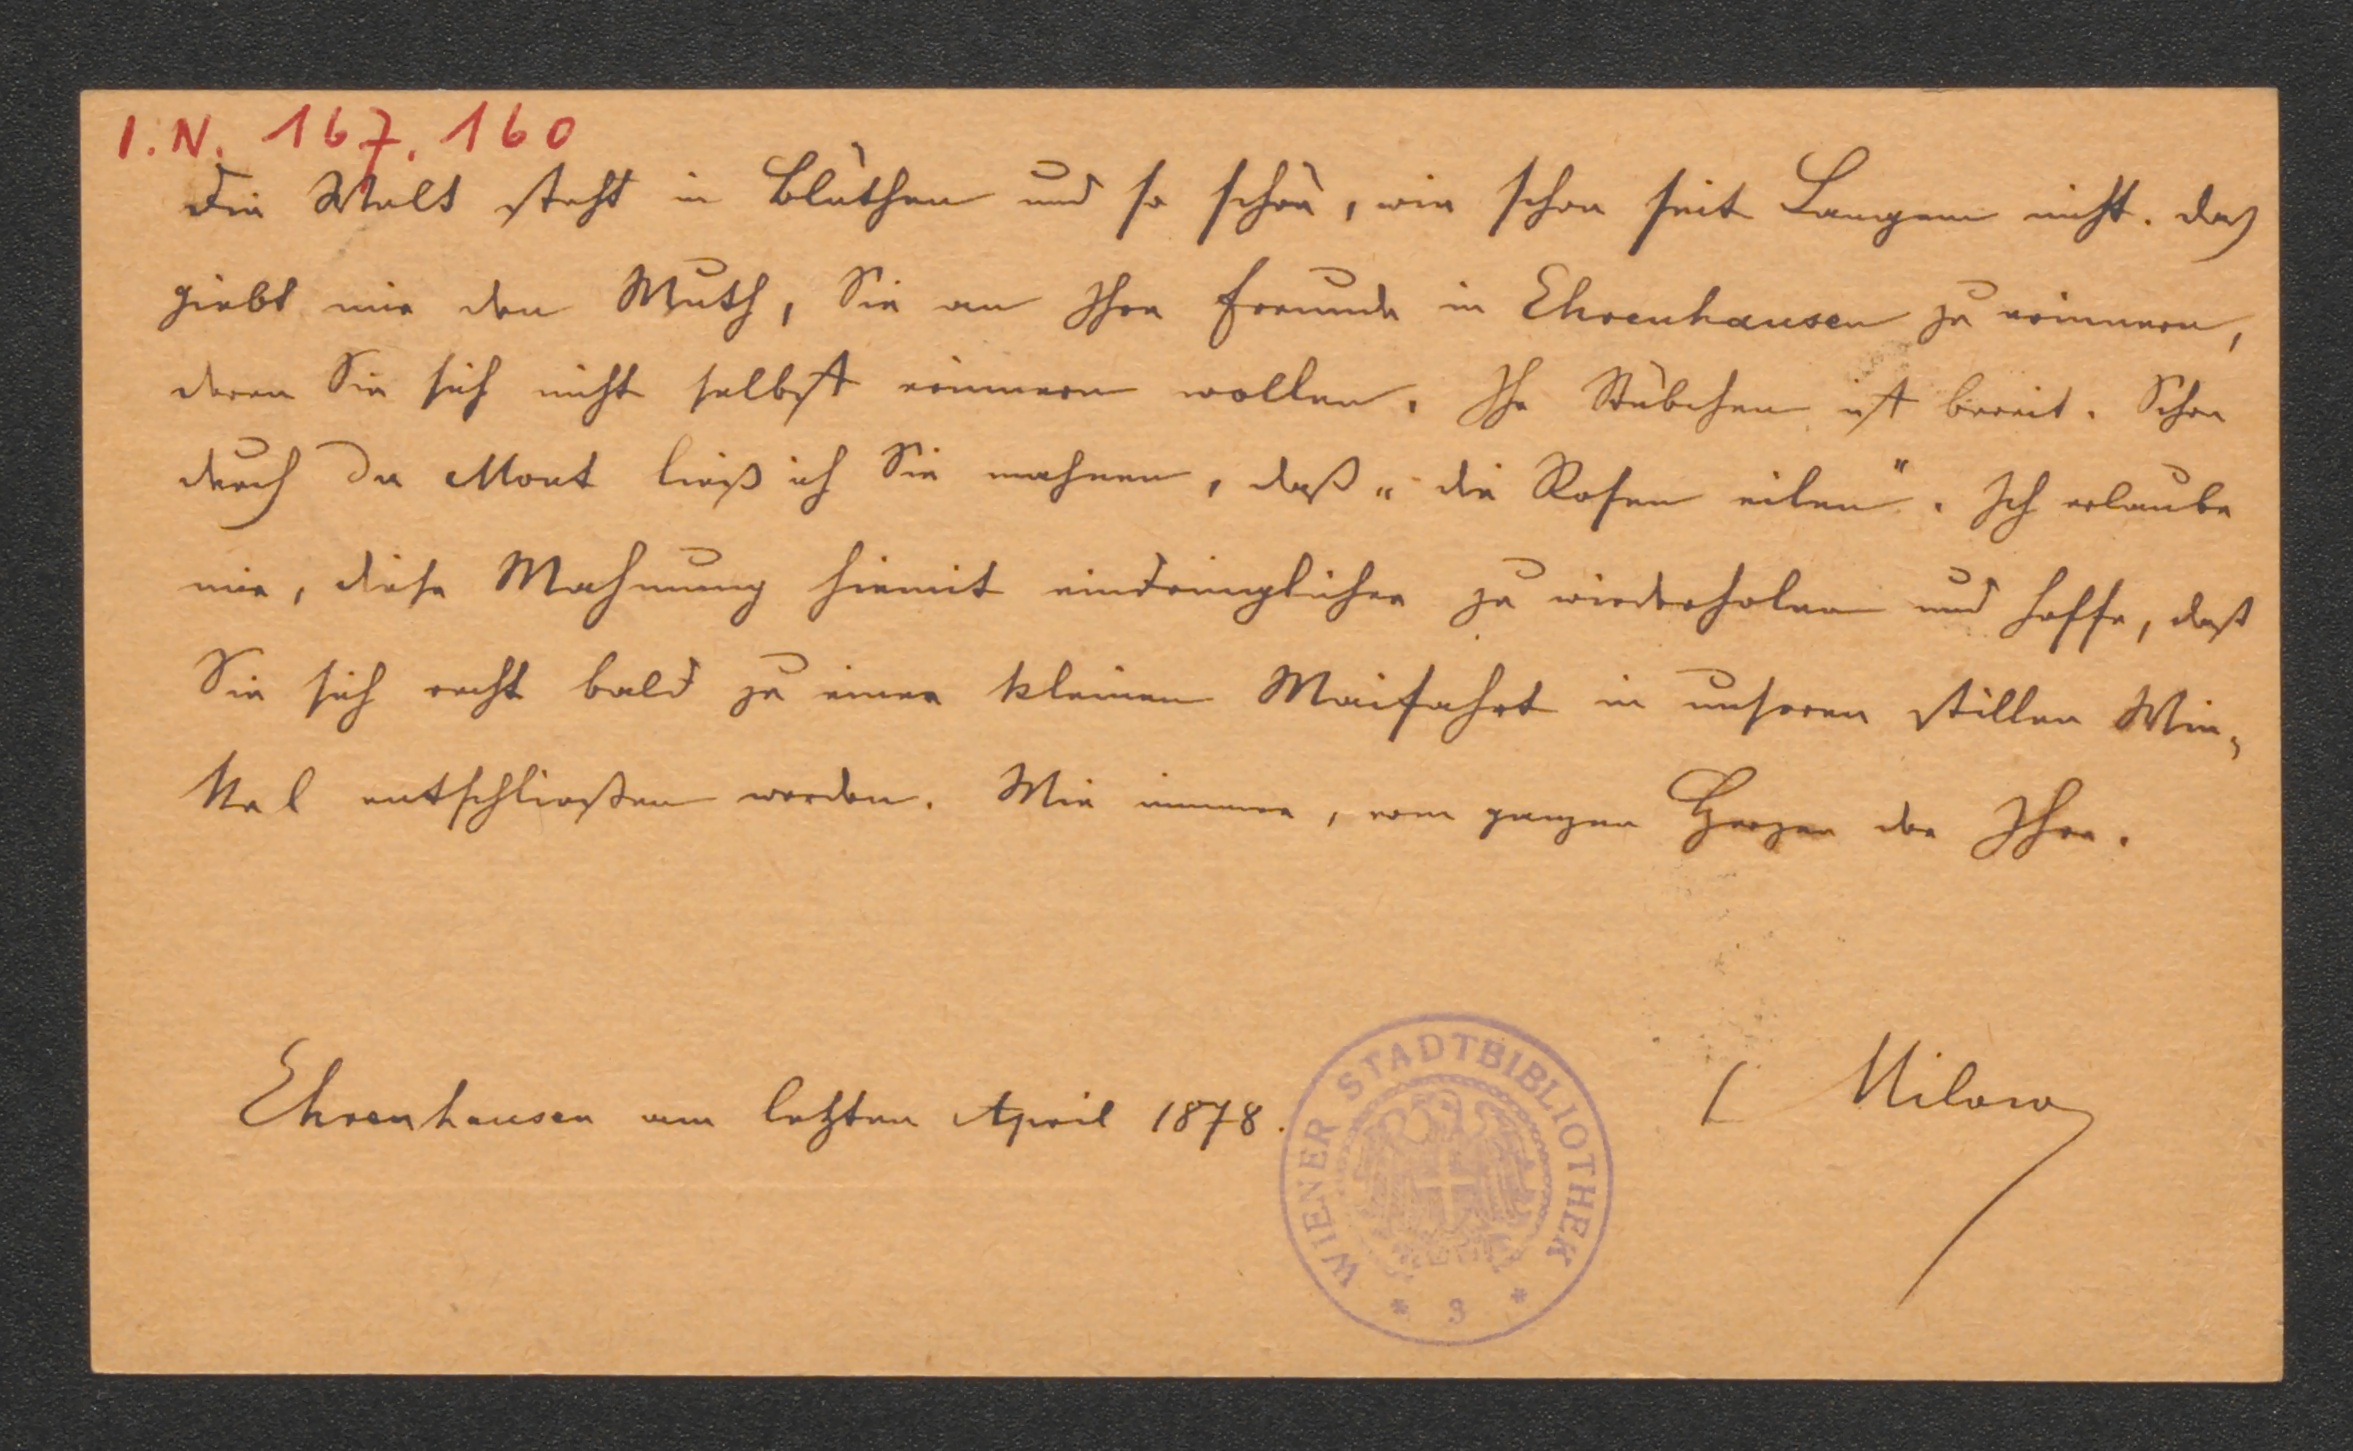 I.N. 167.160
Die Welt steht in Blüthen und so schön, wie schon seit Langem nicht. Das
giebt mir den Muth, Sie an Ihre Freunde in Ehrenhausen zu erinnern,
deren Sie sich nicht selbst erinnern wollen. Ihr Stübchen ist bereit. Schon
durch Du Mont ließ ich Sie mahnen, daß „die Rosen eilen". Ich erlaube
mir, diese Mahnung hiemit eindringlicher zu wiederholen und hoffe, daß
Sie sich recht bald zu einer kleinen Maifahrt in unseren stillen Win-
kel entschließen werden. Wie immer, vom ganzen Herzen der Ihre.
Ehrenhausen am letzten April 1878.
Milow
WIENER STADTBIBLIOTHEK
* 3 *